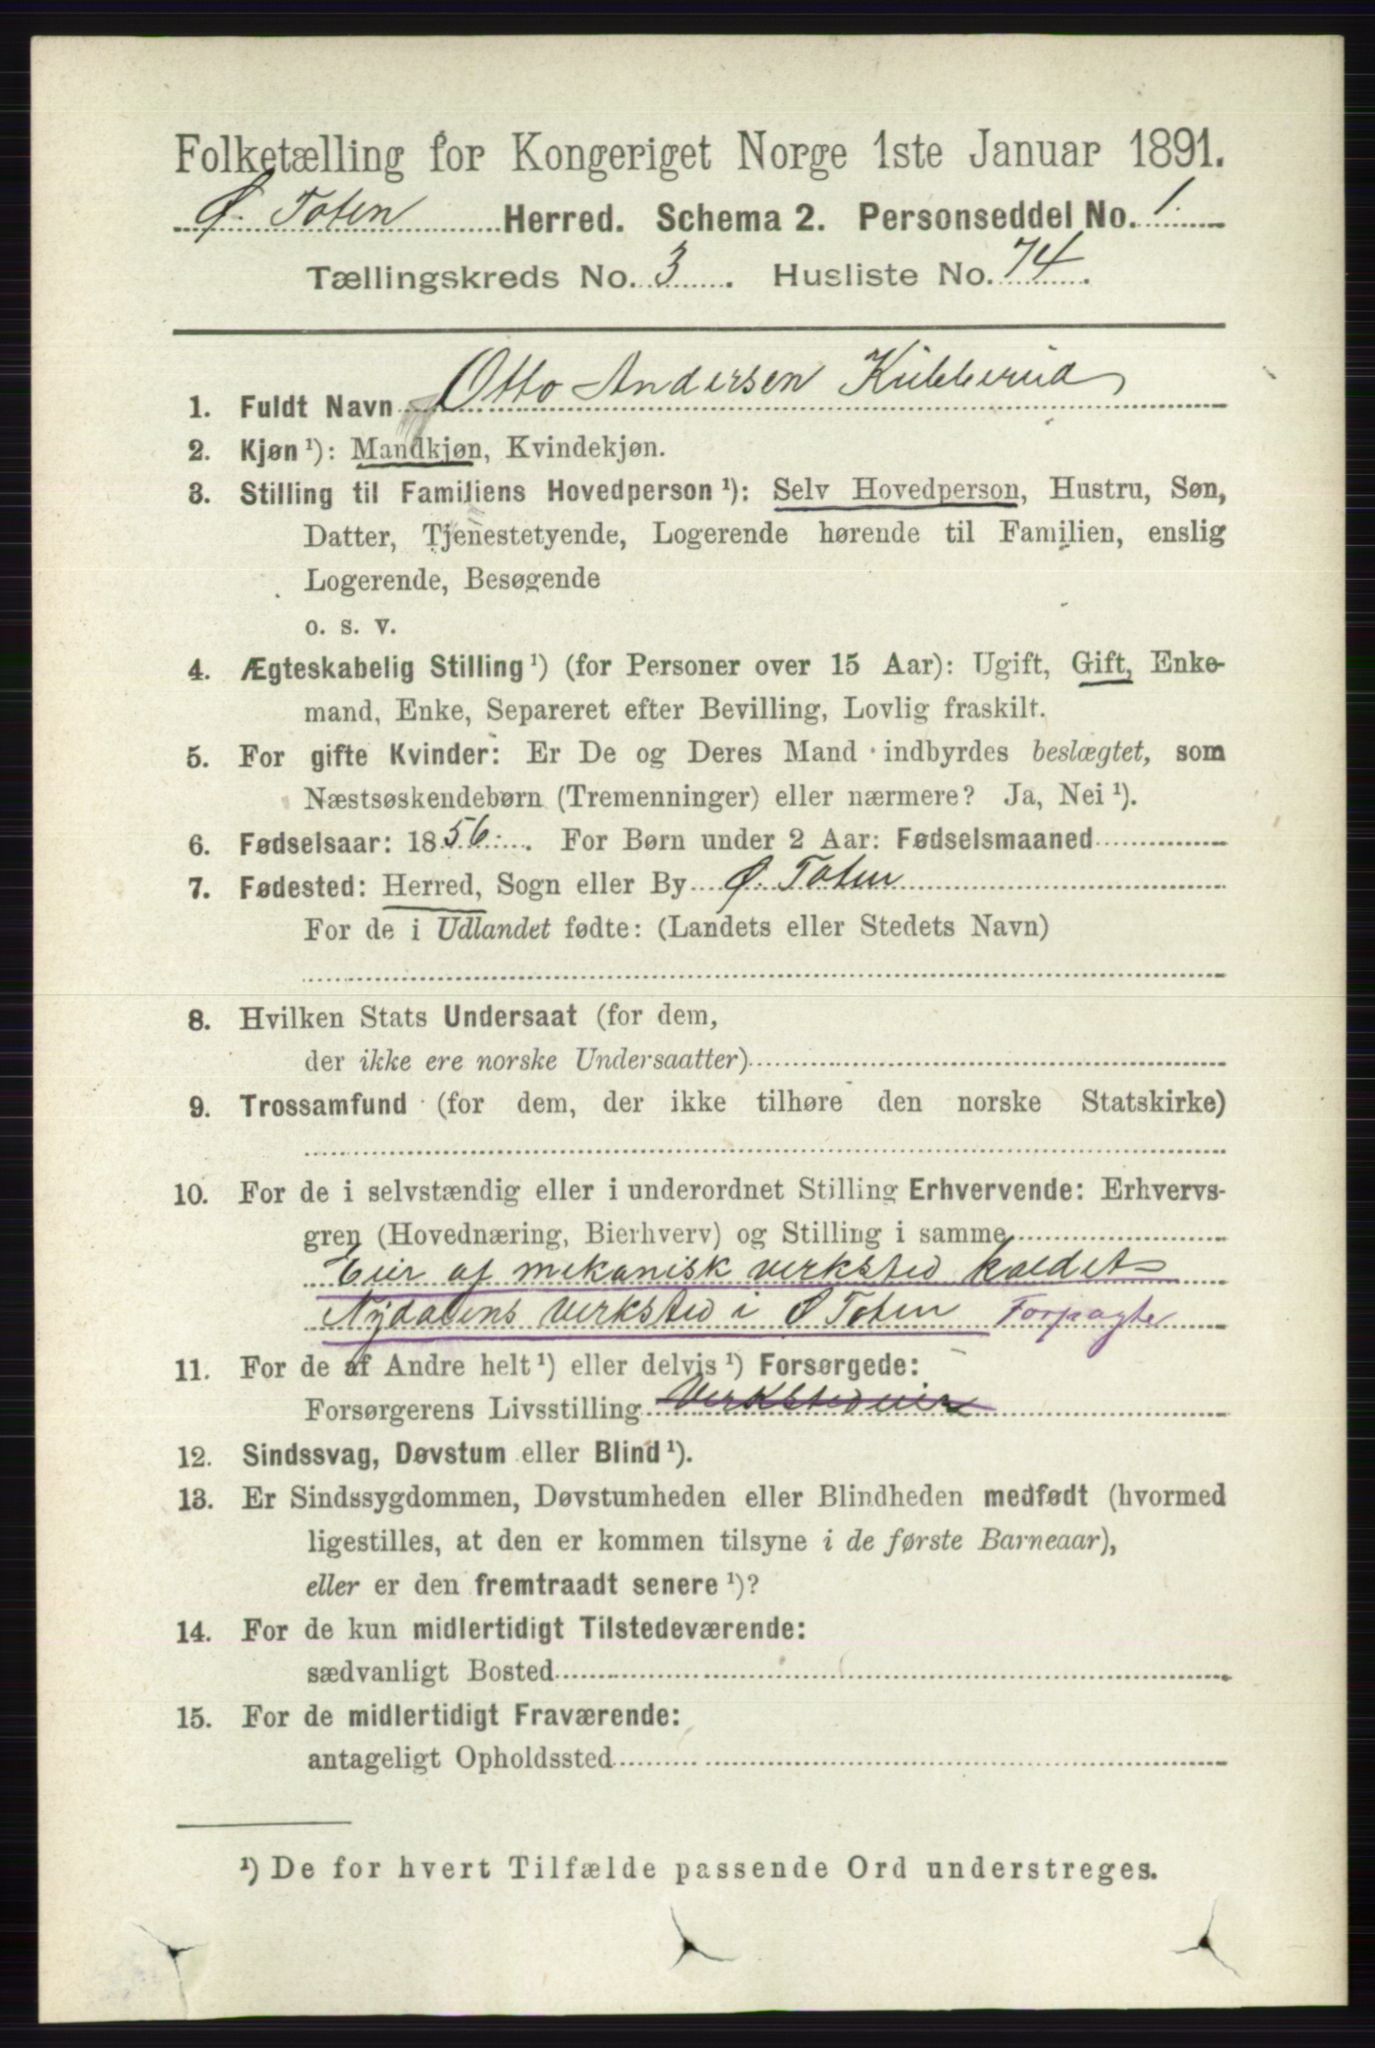 Folketælling for Kongeriget Norge 1ste Januar 1891.
Ø. Toten Herred. Schema 2. Personseddel No. 1.
Tællingskreds No. 3. Husliste No. 74.
1. Fuldt Navn Otto Andersen Kubberud
2. Kjøn¹): Mandkjøn, Kvindekjøn.
3. Stilling til Familiens Hovedperson¹): Selv Hovedperson, Hustru, Søn,
Datter, Tjenestetyende, Logerende hørende til Familien, enslig
Logerende, Besøgende
o. s. v.
4. Ægteskabelig Stilling¹) (for Personer over 15 Aar): Ugift, Gift, Enke-
mand, Enke, Separeret efter Bevilling, Lovlig fraskilt.
5. For gifte Kvinder: Er De og Deres Mand indbyrdes beslægtet, som
Næstsøskendebørn (Tremenninger) eller nærmere? Ja, Nei¹).
6. Fødselsaar: 1856. For Børn under 2 Aar: Fødselsmaaned
7. Fødested: Herred, Sogn eller By Ø. Toten
For de i Udlandet fødte: (Landets eller Stedets Navn)
8. Hvilken Stats Undersaat (for dem,
der ikke ere norske Undersaatter)
9. Trossamfund (for dem, der ikke tilhøre den norske Statskirke)
10. For de i selvstændig eller i underordnet Stilling Erhvervende: Erhvervs-
gren (Hovednæring, Bierhverv) og Stilling i samme
Eier af mekanisk verksted kaldet
Nydalens verksted i Ø Toten Forpagte
11. For de af Andre helt¹) eller delvis¹) Forsørgede:
Forsørgerens Livsstilling Verkstedeier
12. Sindssvag, Døvstum eller Blind¹).
13. Er Sindssygdommen, Døvstumheden eller Blindheden medfødt (hvormed
ligestilles, at den er kommen tilsyne i de første Barneaar),
eller er den fremtraadt senere¹)?
14. For de kun midlertidigt Tilstedeværende:
sædvanligt Bosted
15. For de midlertidigt Fraværende:
antageligt Opholdssted
¹) De for hvert Tilfælde passende Ord understreges.